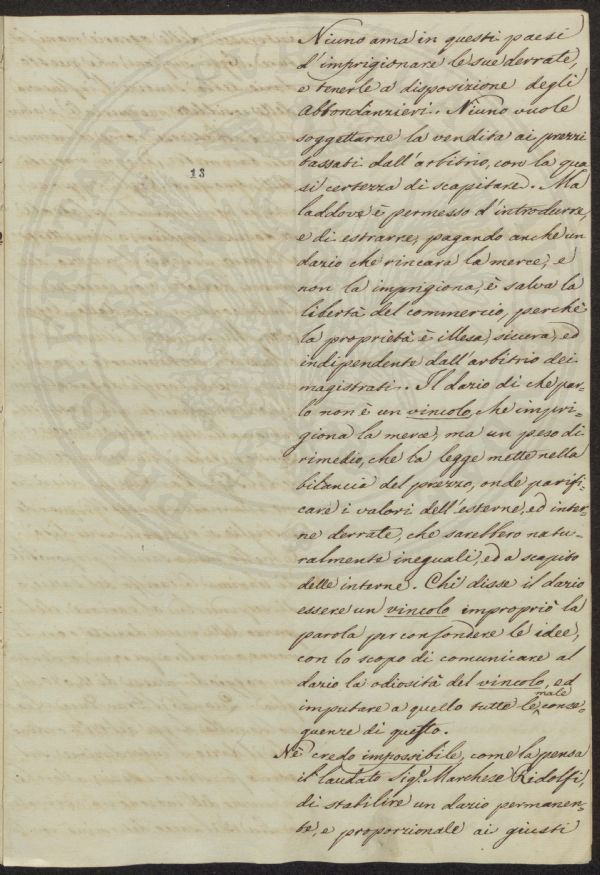 Niuno ama in questi paesi
d'imprigionare le sue derrate,
e tenerle a disposizione degli
Abbondanzieri. Niuno vuole
soggettarne la vendita ai prezzi
tassati dall'arbitrio, con la qua
si certezza di scapitare. Ma
laddove è permesso d'introdurre,
e di estrarre, pagando anche un
dazio che rincara la merce, e
non la imprigiona, è salva la
libertà del commercio, perchè
la proprietà è illesa, sicura, ed
indipendente dall'arbitrio dei
magistrati. Il dazio di che par-
lo non è un vincolo che impri-
giona la merce, ma un peso di
rimedio, che la legge mette nella
bilancia del prezzo, onde parifi-
care i valori dell'esterne, ed inter-
ne derrate, che sarebbero natu-
ralmente ineguali, ed a scapito
delle interne. Chi disse il dazio
essere un vincolo impropriò la
parola per confondere le idee,
con lo scopo di comunicare al
dazio la odiosità del vincolo, ed
imputare a quello tutte le male conse-
guenze di questo.
Nè credo impossibile, come la pensa
il laudato Sigr. Marchese Ridolfi,
di stabilire un dazio permanen-
te, e proporzionale ai giusti
13